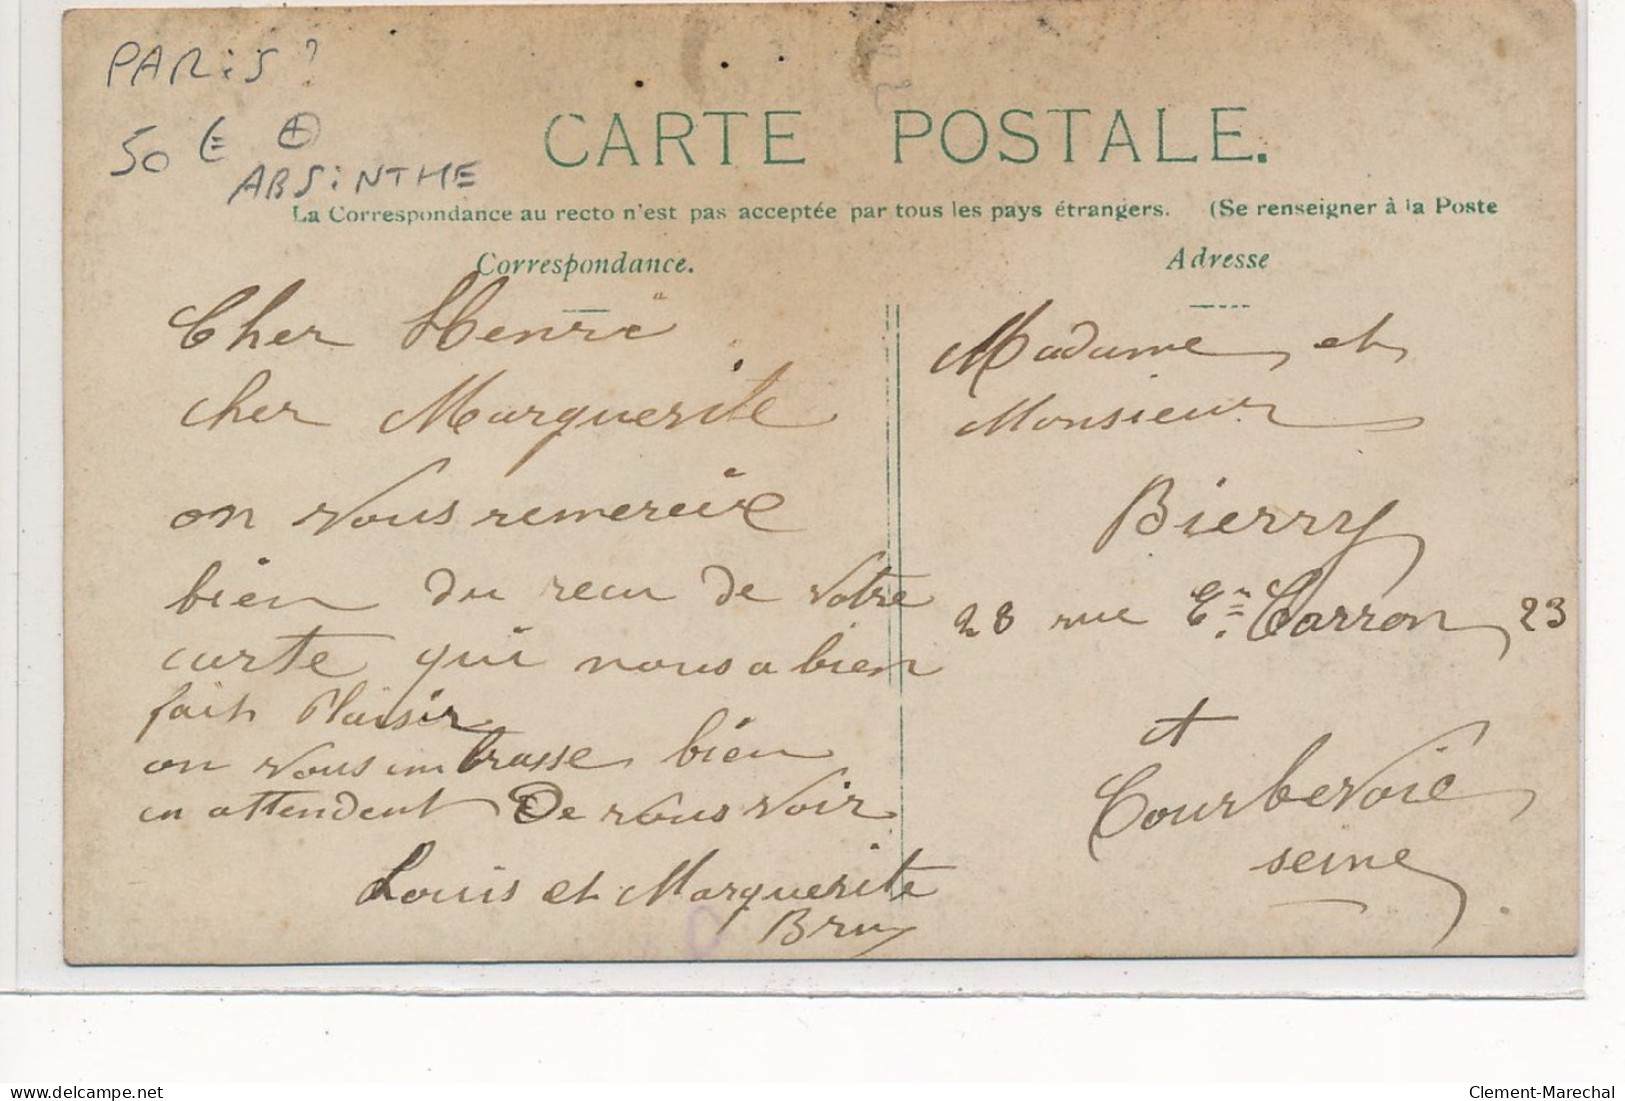 PARiS ?
50 €
ABSiNTHE
CARTE POSTALE.
La Correspondance au recto n'est pas acceptée par tous les pays étrangers. (Se renseigner à la Poste
Correspondance.
Cher Henri
cher Marguerite
on vous remercie
bien du recu de votre
carte qui nous a bien
fait Plaisir
on vous umbrasse bien
en attendent De vous voir
Louis et Marguerite
Bru
Adresse
Madame et
Monsieur
Bierry
28 rue En Carron 23
Courbevoie
seine
Clement-Marechal
www.delcampe.net